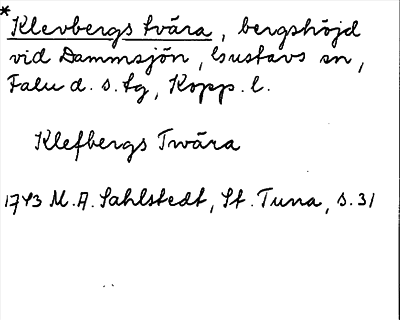 * Klevbergs tvära, bergshöjd
vid Dammsjön, Gustavs sn,
Falu d. s. tg, Kopp. l.
Klefbergs Twära
1743 M. A. Sahlstedt, St. Tuna, s. 31